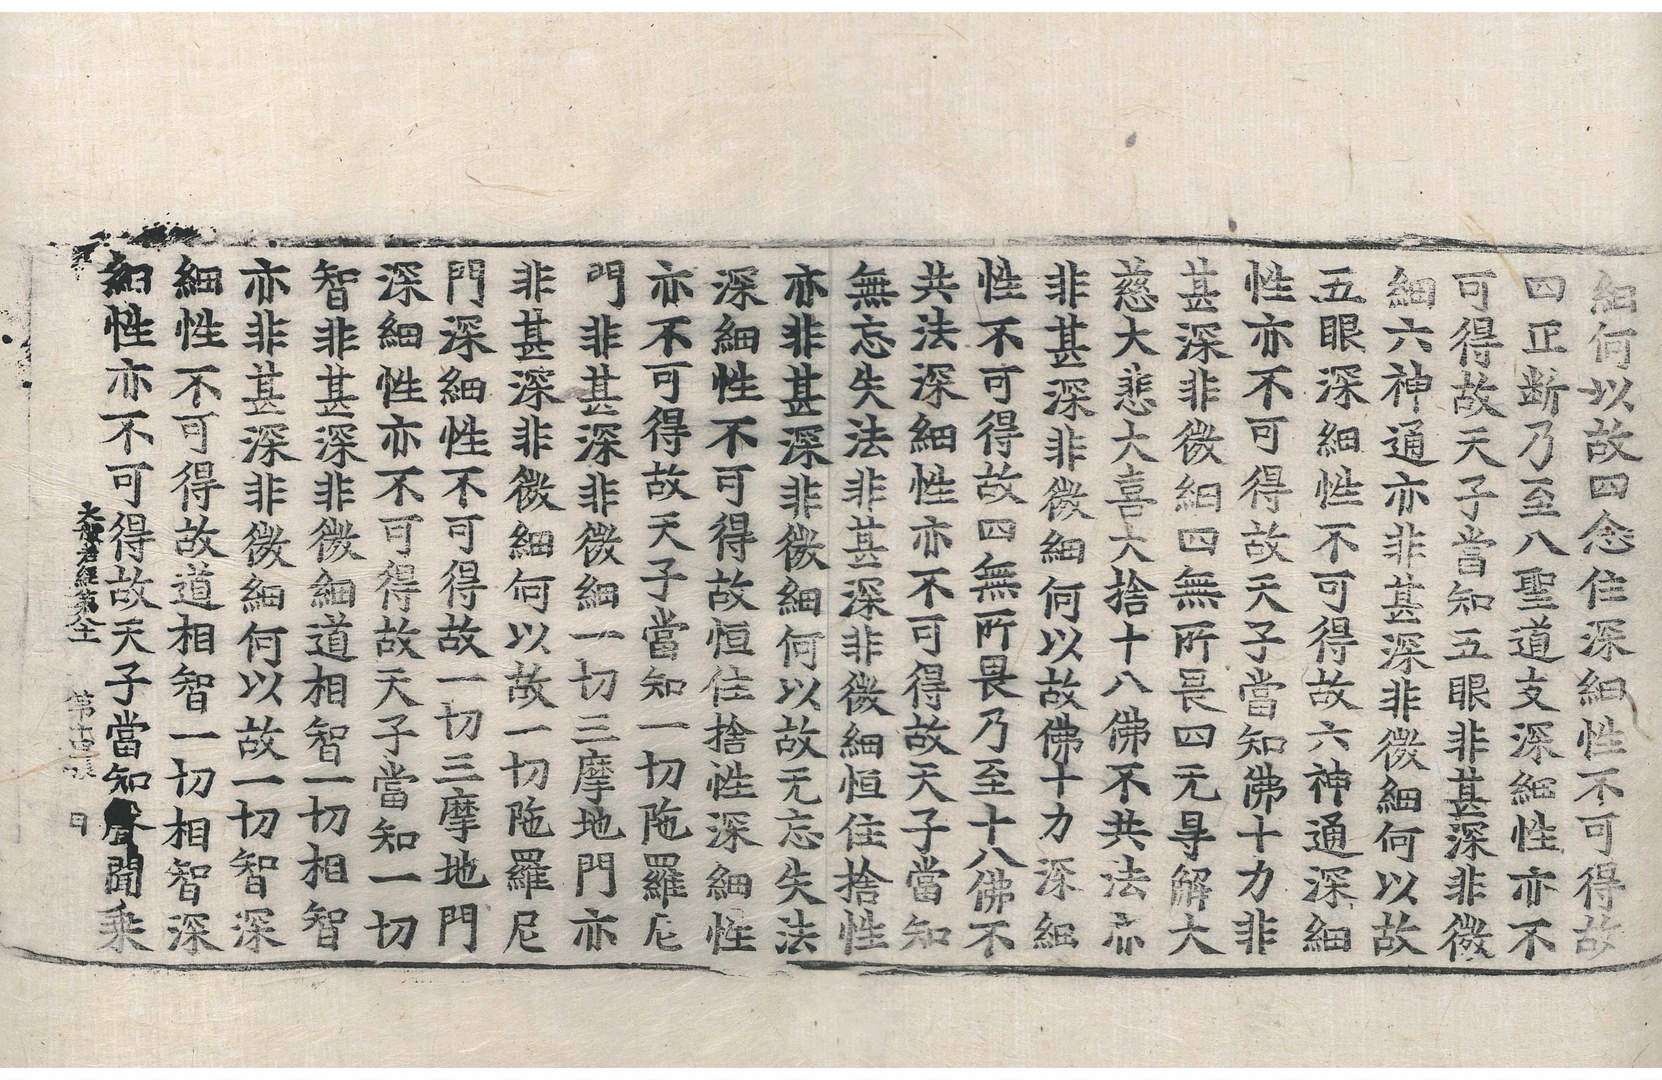 細何以故四念住深細性不可得故
四正断乃至八聖道支深細性亦不
可得故天子當知五眼非甚深非微
細六神通亦非甚深非微細何以故
五眼深細性不可得故六神通深細
性亦不可得故天子當知佛十力非
甚深非微細四無所畏四无㝵解大
慈大悲大喜大捨十八佛不共法亦
非甚深非微細何以故佛十力深細
性不可得故四無所畏乃至十八佛不
共法深細性亦不可得故天子當知
無忘失法非甚深非微細恒住捨性
亦非甚深非微細何以故无忘失法
深細性不可得故恒住捨性深細性
亦不可得故天子當知一切陁羅尼
門非甚深非微細一切三摩地門亦
非甚深非微細何以故一切陁羅尼
門深細性不可得故一切三摩地門
深細性亦不可得故天子當知一切
智非甚深非微細道相智一切相智
亦非甚深非微細何以故一切智深
細性不可得故道相智一切相智深
細性亦不可得故天子當知聲聞乘
大般若經第 第 張 日